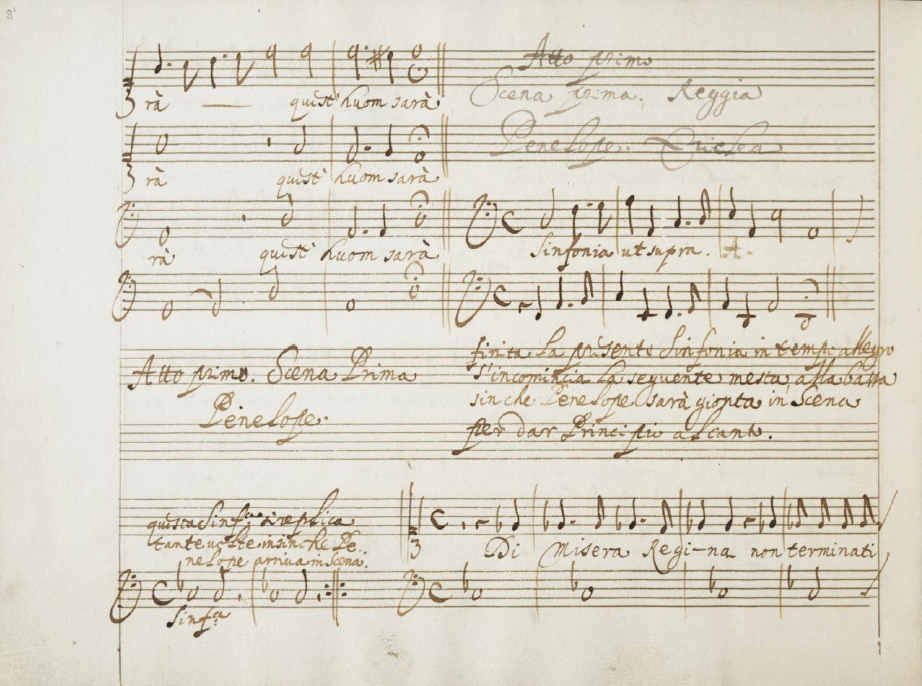 8
Atto primo
rà quest' huom sarà
Scena prima. Reggia
Penelope. Ericlea
rà quest' huom sarà
rà quest' huom sarà
Sinfonia ut supra. A.
Atto primo. Scena Prima
Penelope.
finita la presente Sinfonia in temp: allegro
s'incomincia la seguente mesta, alla bassa
sin che Penelope sarà gionta in Scena
per dar Principio al canto.
questa Sinf.a si replica
tante volte insin che Pe:
nelope arriva in Scena.
Di Misera Regi-na non terminati
Sinf.a